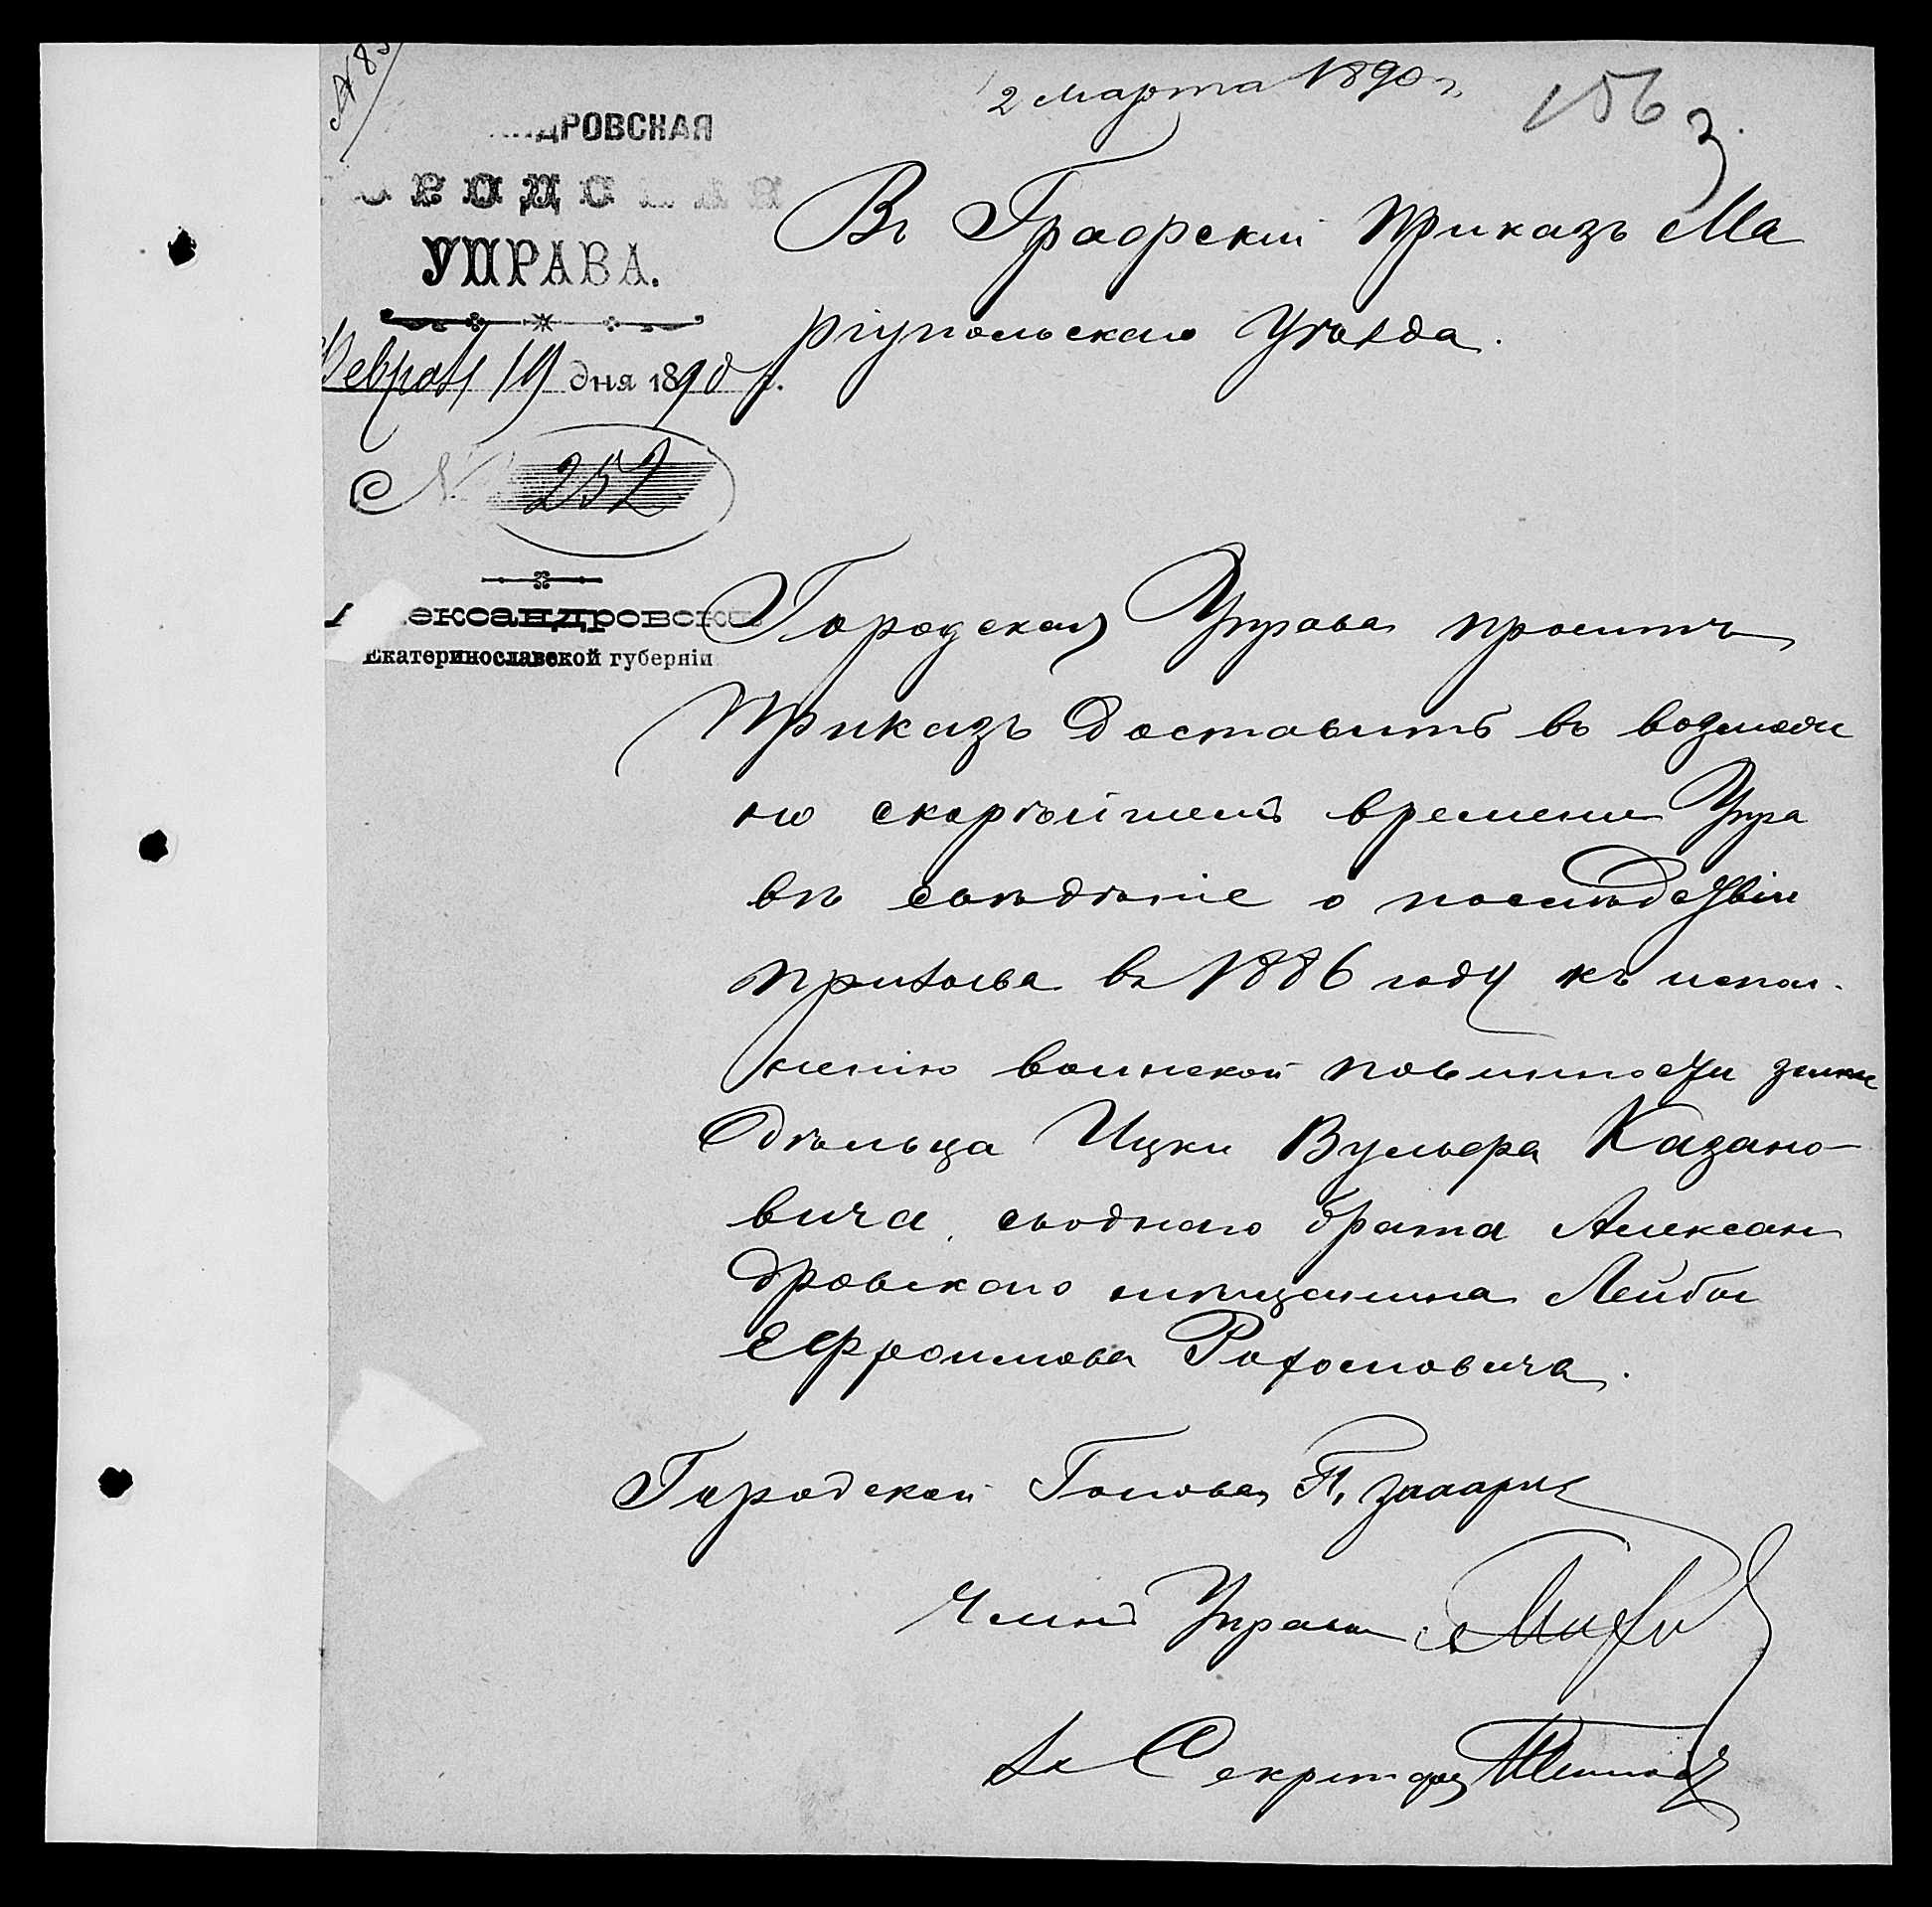 № 83
2 марта 1890 г.
156
3.
ДРОВСКАЯ
ГОРОДСКАЯ
УПРАВА.
Феврал 19 дня 1890 г.
№ 252
Александровскъ
Екатеринославской губерніи
Въ Графскій Приказъ Ма
ріупольскаго Уѣзда.
Городская Управа проситъ
Приказъ доставить въ возможн
но скорѣйшемъ времени Упра
вѣ свѣдѣніе о послѣдствіи
призыва въ 1886 году къ испол-
ненію воинской повинности земле
дѣльца Ицки Вульфа Казано-
вича, своднаго брата Алексан
дровскаго мѣщанина Лейбы
Ефроимова Рахомовича.
Городской Голова Ф.
Членъ Управы
Секретарь